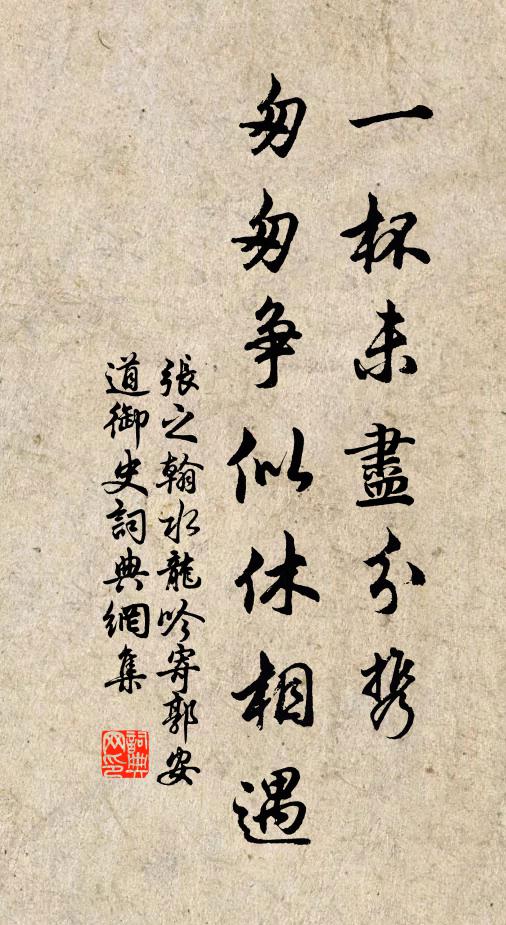 一杯未盡分携
匆匆争似休相遇
張之翰水龍吟寄郭安
道御史詞典網集
詞典
网印